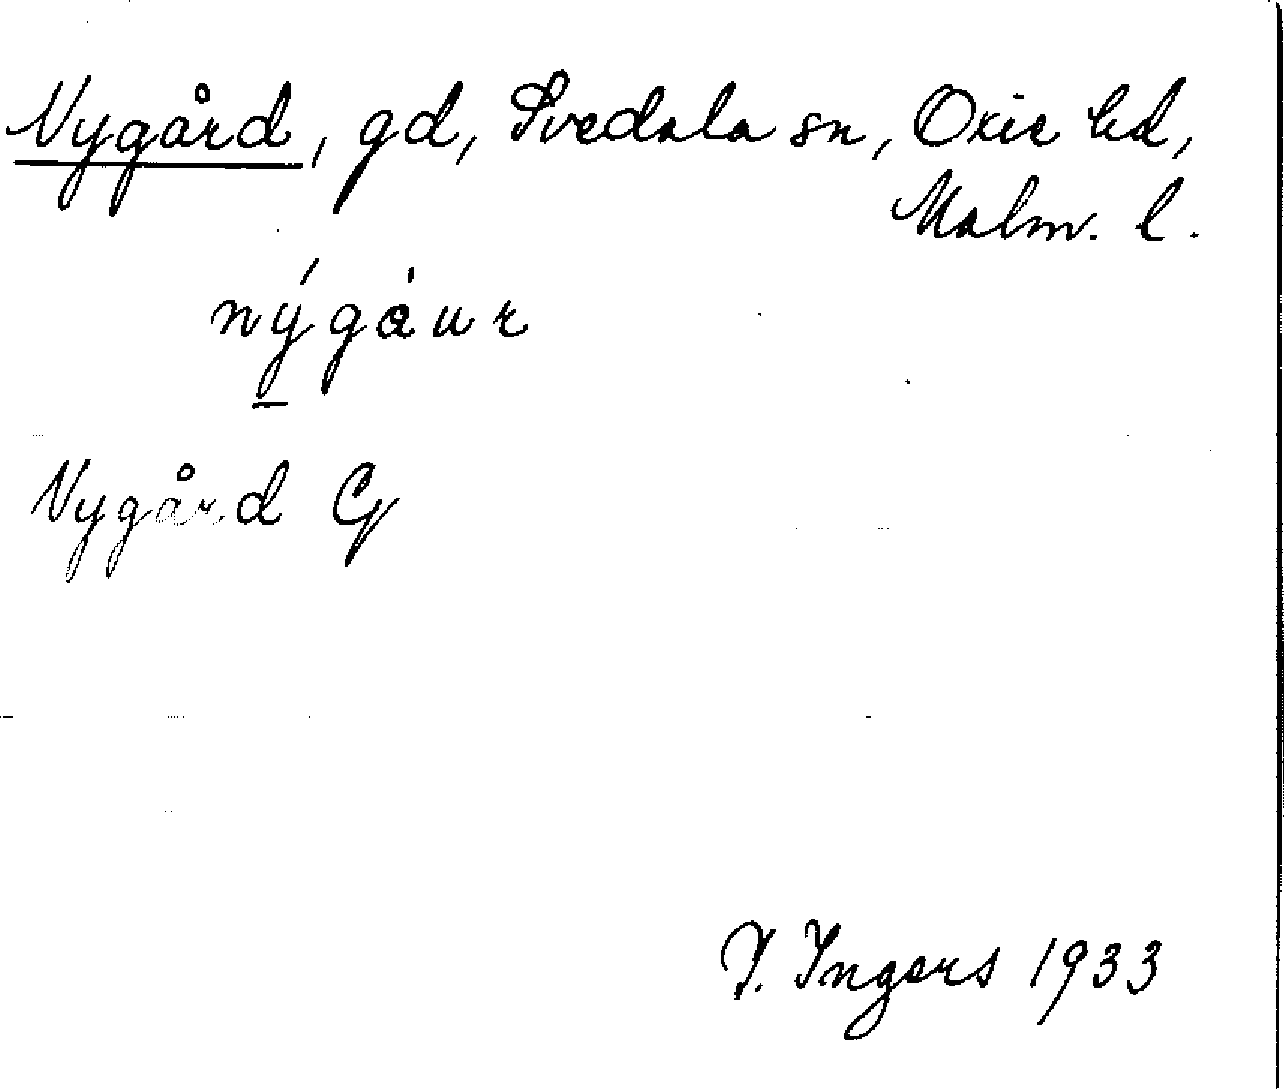 Nygård, gd, Svedala sn, Oxie hd,
Malm. l.
nýgàur
Nygård G
I. Ingers 1933